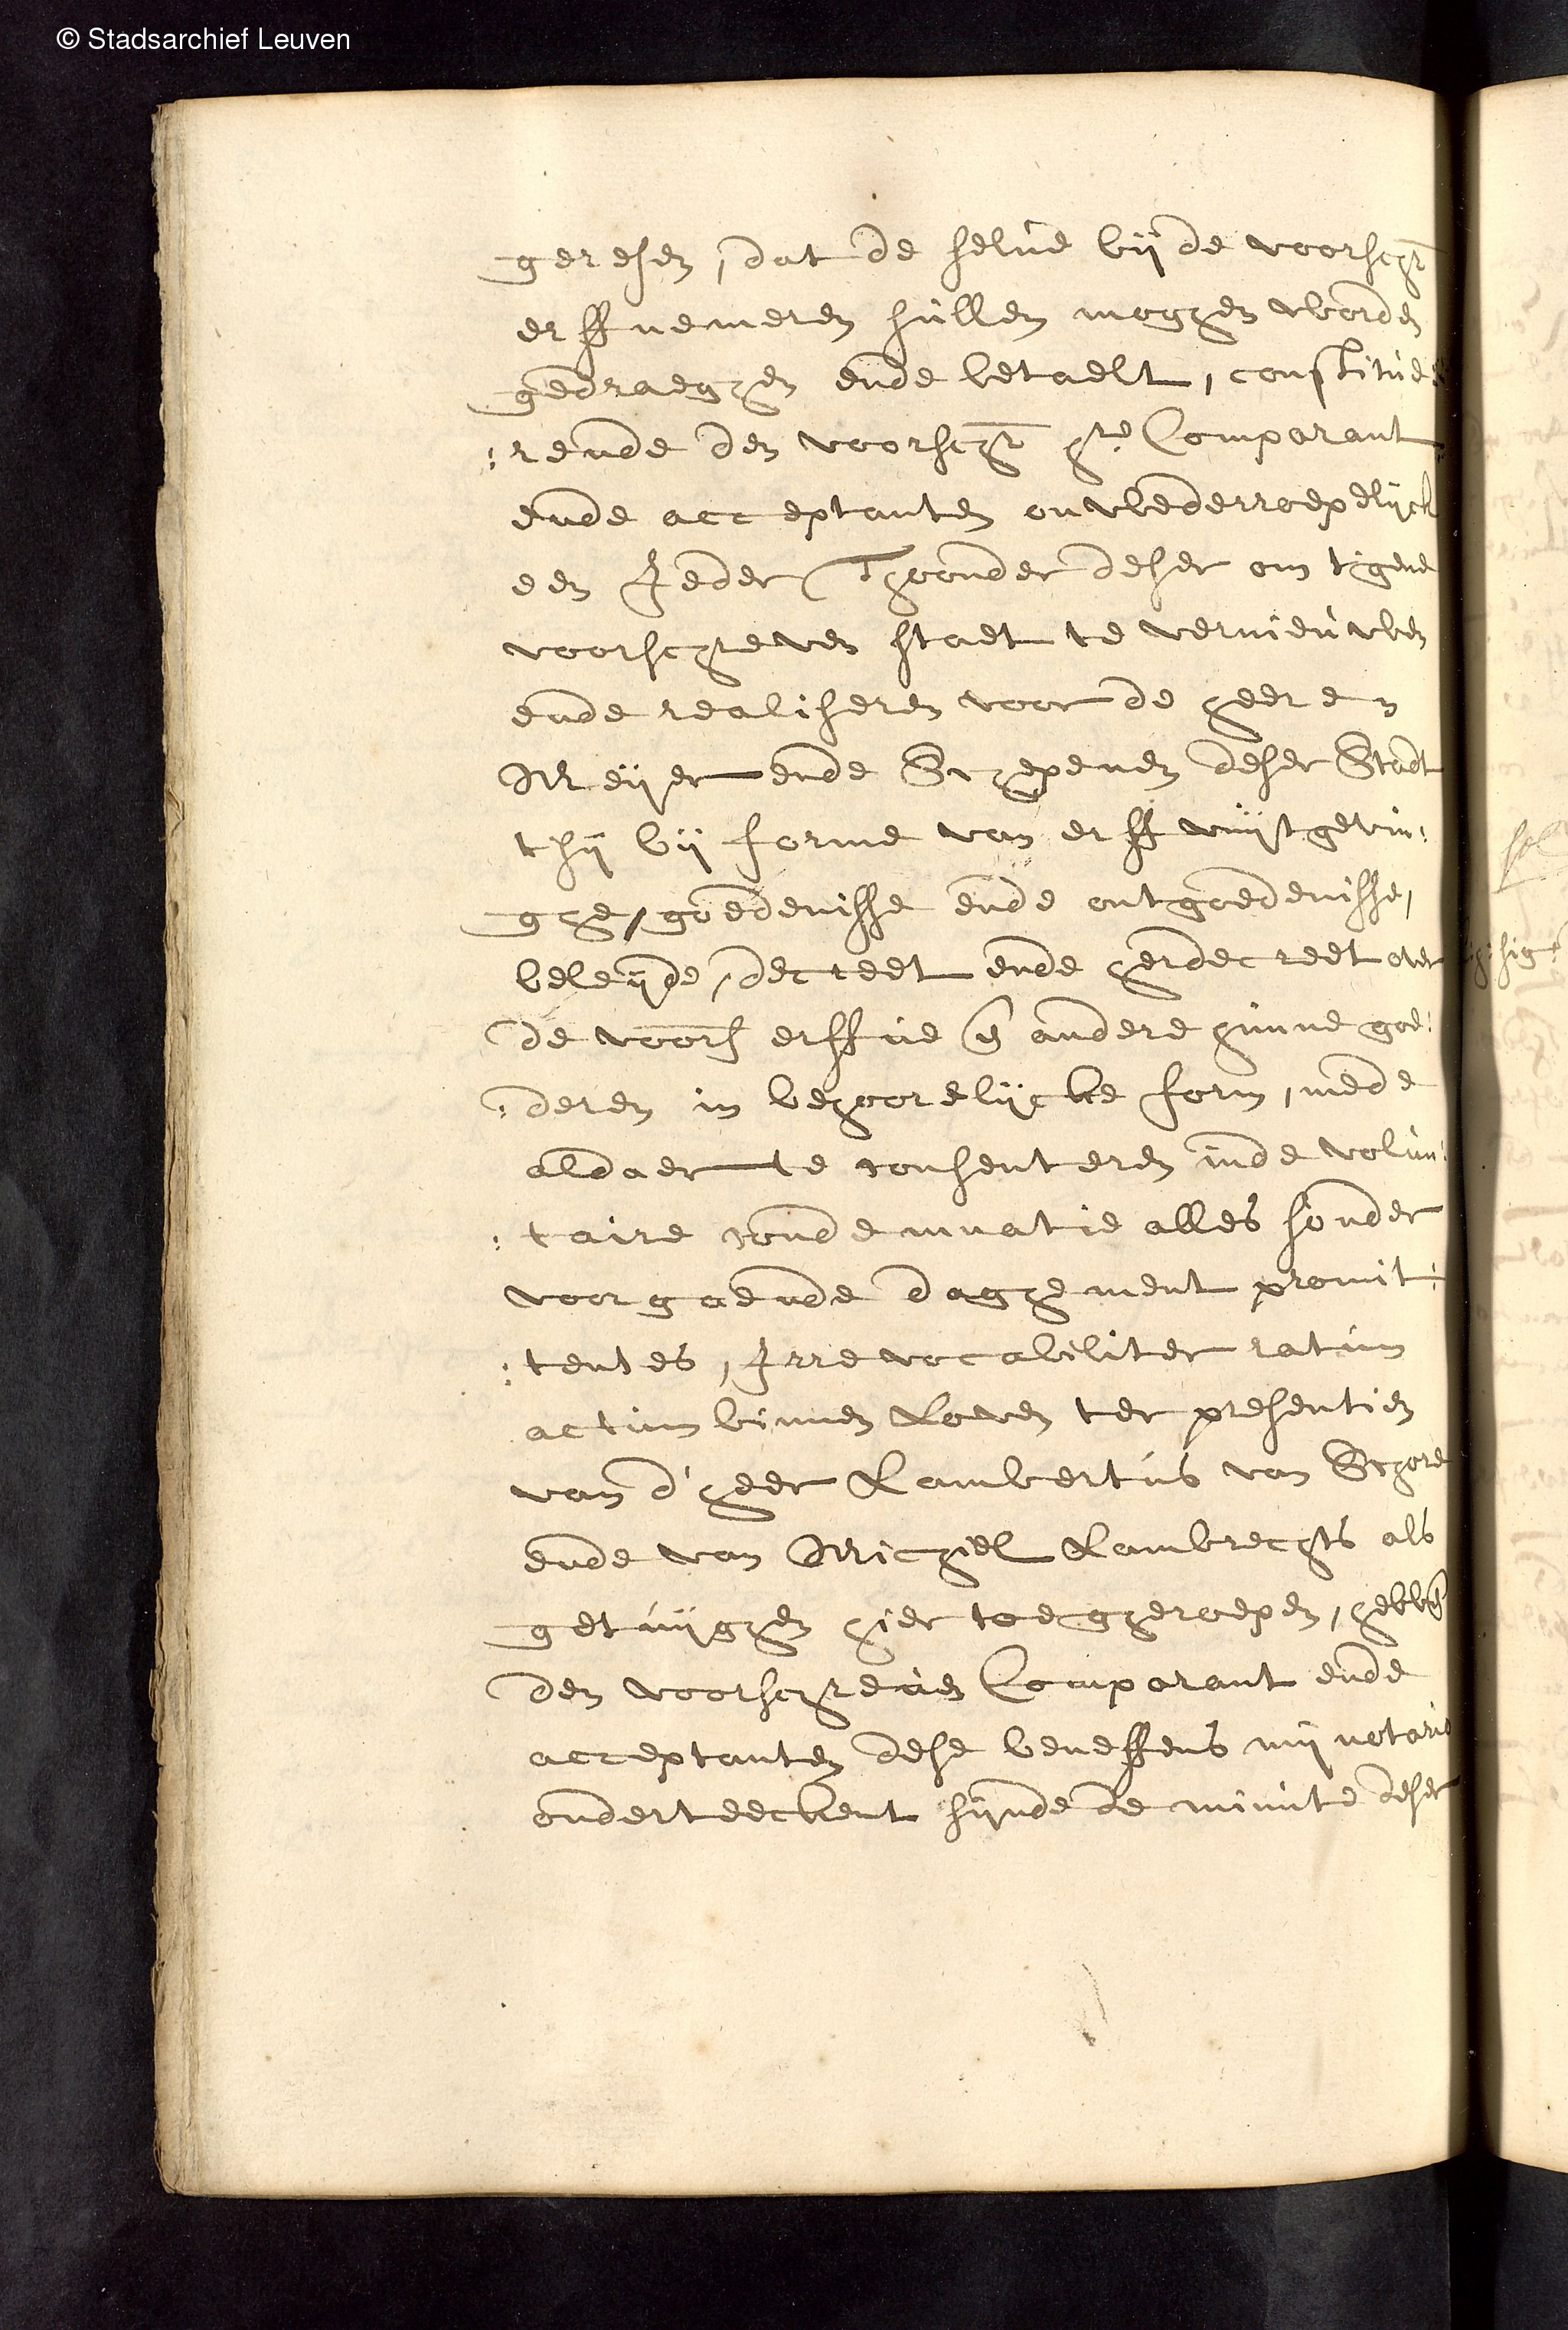 © Stadsarchief Leuven
geresen, dat de selve bij de voorschr
erffnemeren sullen moghen worden
gedraeghen ende betaelt, constitue
:rende den voorschr hre Comparant
ende acceptanten onwederroepelijck
een Jeder Thoonder deser om tgene
voorschreven staet te vernieuwen
ende realiseren voor de heeren
Meijer ende Schepenen deser Stadt
tsij bij forme van erff vuijtgevin:
ghe, goedenisse ende ontgoedenisse,
beleijde, decreet ende herdecreet over
de voors erffve en andere hunne goe:
:deren in behoorelijcke form, mede
aldaer te consenteren inde volun:
:taire condemnatie alles sonder
voorgaende daghement promit:
:tentes, Irrevocabiliter ratum
actum binnen Loven ter presentien
van d'heer Lambertus van Schore
ende van Michiel Lambrechts als
getuijghen hier toe gheroepen, hebben
den voorschreven Comparant ende
acceptanten dese beneffens mij notaris
onderteeckent sijnde de minute deser